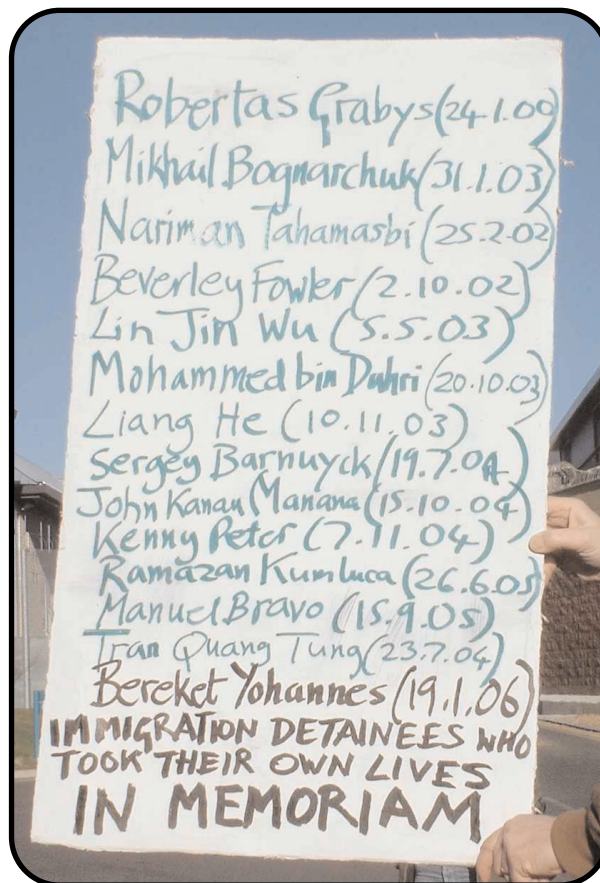 Robertas Grabys (24.1.00)
Mikhail Bognarchuk (31.1.03)
Nariman Tahamasbi (25.2.02)
Beverley Fowler (2.10.02)
Lin Jin Wu (5.5.03)
Mohammed bin Duhri (20.10.03)
Liang He (10.11.03)
Sergey Barnuyck (19.7.04)
John Kanau Manana (15.10.04)
Kenny Peter (7.11.04)
Ramazan Kumluca (26.6.05)
Manuel Bravo (15.9.05)
Tran Quang Tung (23.7.04)
Bereket Yohannes (19.1.06)
IMMIGRATION DETAINEES WHO
TOOK THEIR OWN LIVES
IN MEMORIAM